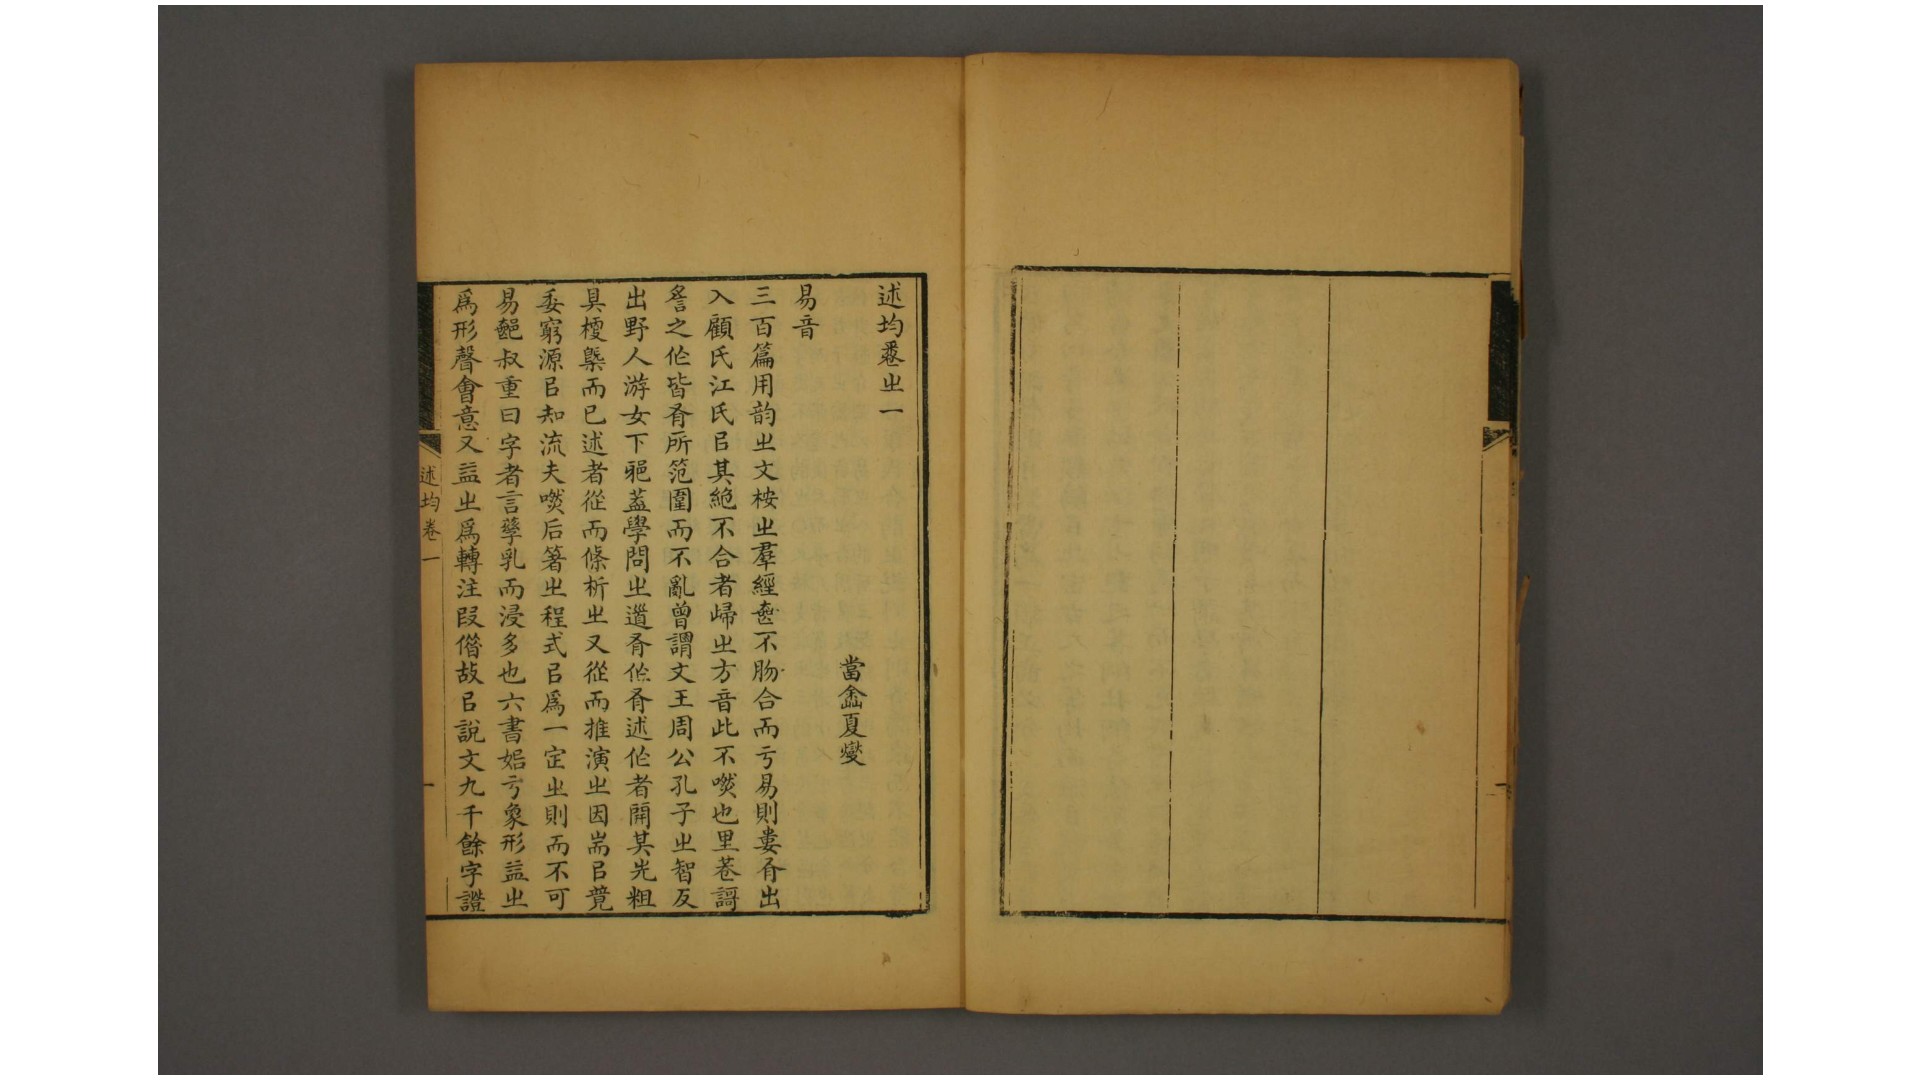 述均弮㞢一
當嵞夏燮
易音
三百篇用韵㞢文桉㞢羣經㒸不肳合而亏易則婁㕛出
入顧氏江氏㠯其絶不合者歸㞢方音此不嘫也里巷謌
䚻之作皆㕛所笵圍而不亂曾謂文王周公孔子㞢智反
出野人游女下邪葢學問㞢道㕛作㕛述作者開其先粗
具椱槩而已述者從而條析㞢又從而推演㞢因耑㠯竟
委窮源㠯知流夫嘫后箸㞢程式㠯爲一定㞢則而不可
易䣛叔重曰字者言孳乳而浸多也六書始亏象形益㞢
爲形聲會意又益㞢爲轉注叚借故㠯說文九千餘字證
述均卷一
一